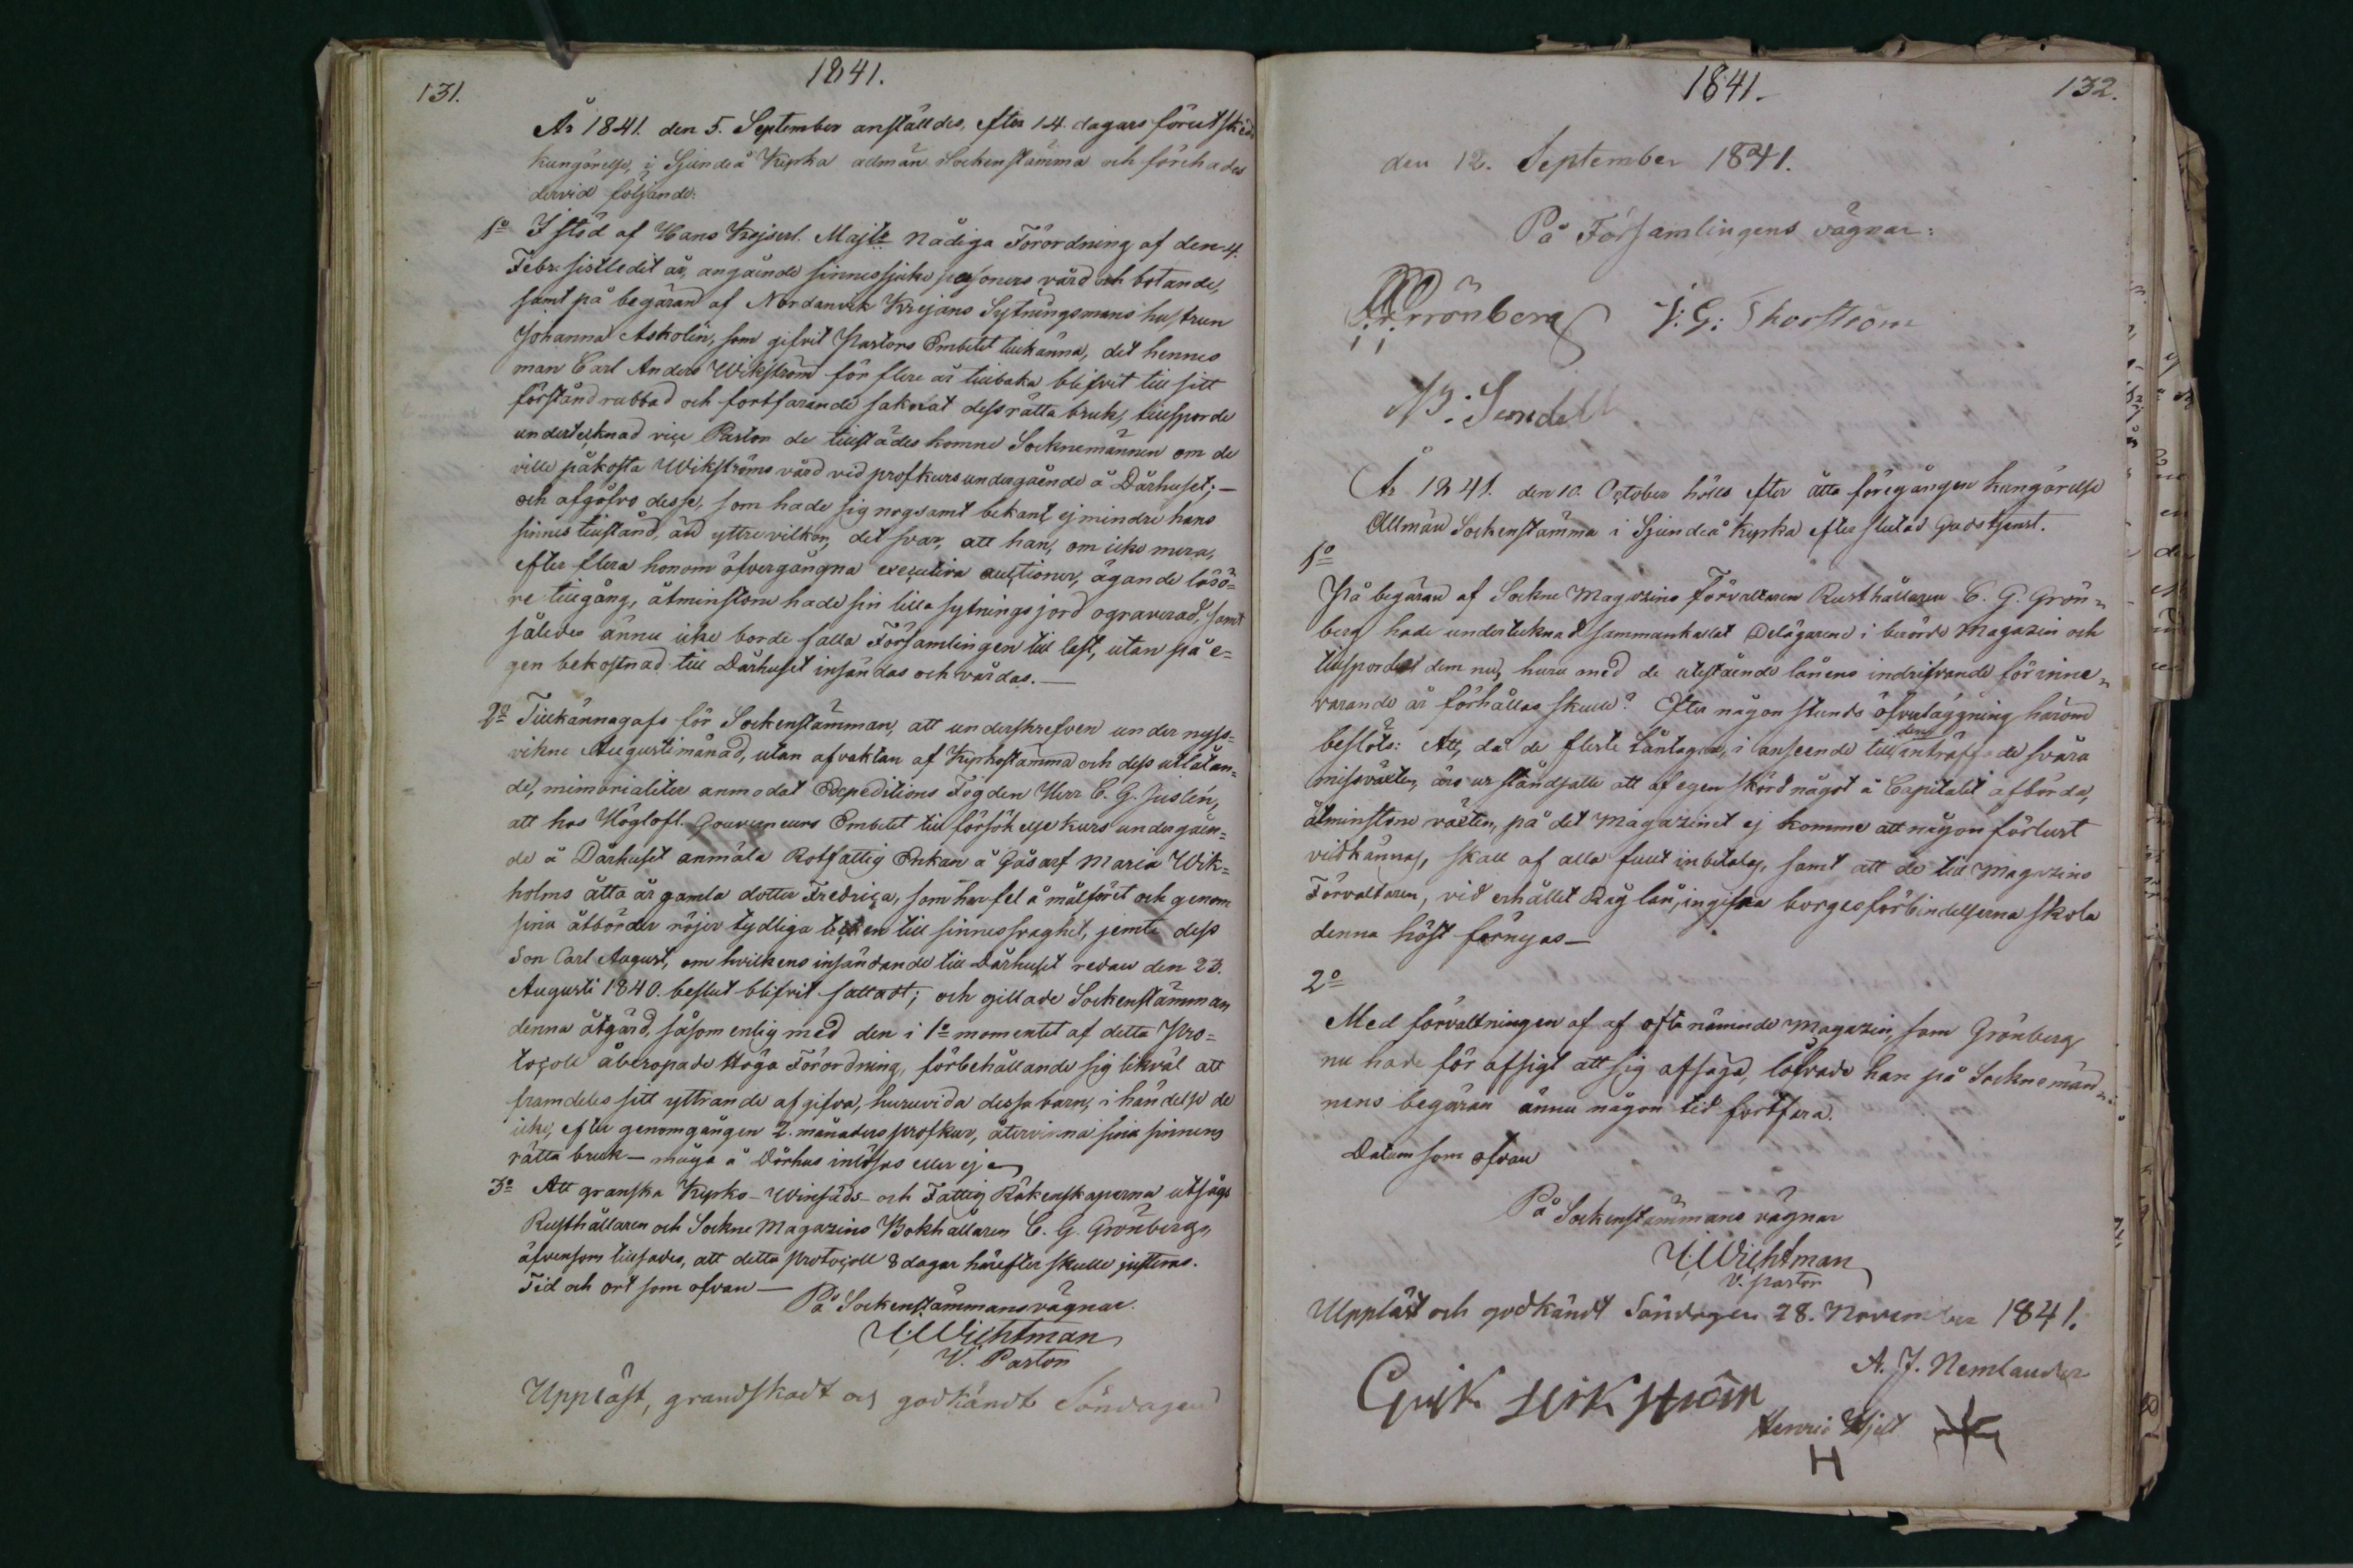 131.
1841.
År 1841. den 5. September anställdes, efter 14. dagars förutskedd
kungörelse, i Sjundeå Kyrka allmän Sockenstämma och förehades
dervid följande:
1o I stöd af Hans Kejserl. Majts Nådiga Förordning af den 4.
Febr. sistledit år, angående sinnessjuke personers vård och botande,
samt på begäran af Nordanvik Krejans Sytningsmans hustrun
Johanna Askolin, som gifvit Pastors Embetet tillkänna, det hennes
man Carl Anders Wikström för flere år tillbaka blifvit till sitt
förstånd rubbad och fortfarande saknat dess rätta bruk, tillsporde
undertecknad vice Pastor de tillstädes komne Socknemännen om de
ville påkosta Wikströms vård vid profkurs undergående å Dårhuset; —
och afgåfvo desse, som hade sig nogsamt bekant, ej mindre hans
sinnes tillstånd, än yttre vilkor, det svar, att han, om icke mera,
efter flera honom öfvergångna executiva auctioner, ägande lösö=
re tillgång, åtminstone hade sin lilla sytningsjord ograverad, samt
således ännu icke borde falla Församlingen till last, utan på e=
gen bekostnad till Dårhuset insändas och vårdas. —
2o Tillkännagafs för Sockenstämman, att underskrefven under nyss=
vikne Augusti månad, utan afvaktan af Kyrkostämma och dess utlåtan=
de, mimorialiter anmodat Expeditions Fogden Herr C. G. Juslén,
att hos Höglofl. Gouverneurs Embetet till försökelse kurs undergåen=
de å Dårhuset anmäla Rotfattig Enkan å Gåsarf Maria Wik=
holms åtta år gamla dotter Fredrica, som har fel å målföret och genom
sina åtbörder röjer tydliga tecken till sinnessvaghet, jemte dess
Son Carl August, om hvilkens insändande till Dårhuset redan den 23.
Augusti 1840. beslut blifvit fattadt; och gillade Sockenstämman
denna åtgärd, såsom enlig med den i 1o momentet af detta Pro=
tocoll åberopade Höga Förordning, förbehållande sig likväl att
framdeles sitt yttrande afgifva, huruvida dessa barn, i händelse de
icke, efter genomgången 2. månaders profkur, återvinna sina sinnens
rätta bruk — måga å Dårhus inlösas eller ej —
3o Att granska Kyrko- Winsäds- och Fattig Räkenskaperna utsågs
Rusthållaren och Sockne Magazins Bokhållaren C. G. Grönberg,
äfvensom tillsades, att detta protocoll 8 dagar härefter skulle justeras.
Tid och ort som ofvan —
På Sockenstämmans vägnar.
Wichtman
V. Pastor
Uppläst, grandskadt och godkändt Söndagen
1841.
132.
den 12. September 1841.
På Församlingens vägnar:
Grönberg J: G: Thorström
Sendell
År 1841. den 10. October hölls efter åtta föregången kungörelse
Allmän Sockenstämma i Sjundeå Kyrka efter slutad Gudstjenst.
1o
På begäran af Sockne Magazins Förvaltaren Rusthållaren C. G. Grön=
berg hade undertecknad sammankallat Delägarene i berörde Magazin och
tillspordes dem nu, huru med de utestående lånens indrifvande för inne=
varande år förhållas skulle? Efter någon stunds öfverläggning härom
beslöts: Att, då de fleste Låntagare, i anseende till deras inträffade svåra
missväxter, äro ur ståndsatte att af egen skörd något å Capitalet afbörda,
åtminstone räntan, på det Magazinet ej komme att någon förlust
vidkännas, skall af alla fullt inbetalas, samt att de till Magazins
Förvaltaren, vid erhållet Råg lån, ingifna borgesförbindelserna skola
denna höst förnyas —
2o
Med förvaltningen af af ofta nämnde Magazin, som Grönberg
nu hade för afsigt att sig afsäga, lofvade han på Socknemän=
nens begäran ännu någon tid fortfara.
Datum som ofvan
På Sockenstämmans vägnar
Wichtman
V. Pastor
Uppläst och godkändt Söndagen 28. November 1841.
A. J. Nemlander
Henric Hjelt
H